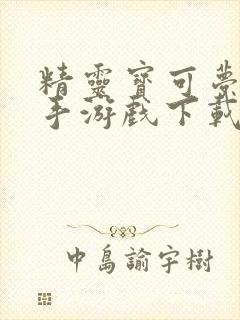 精靈寶可夢
手游戲下載
中島諭宇樹